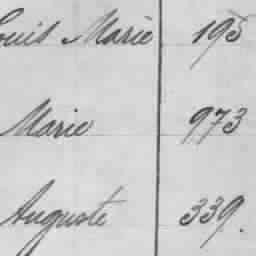 Louis Marie 195
Marie 973
Auguste 339.